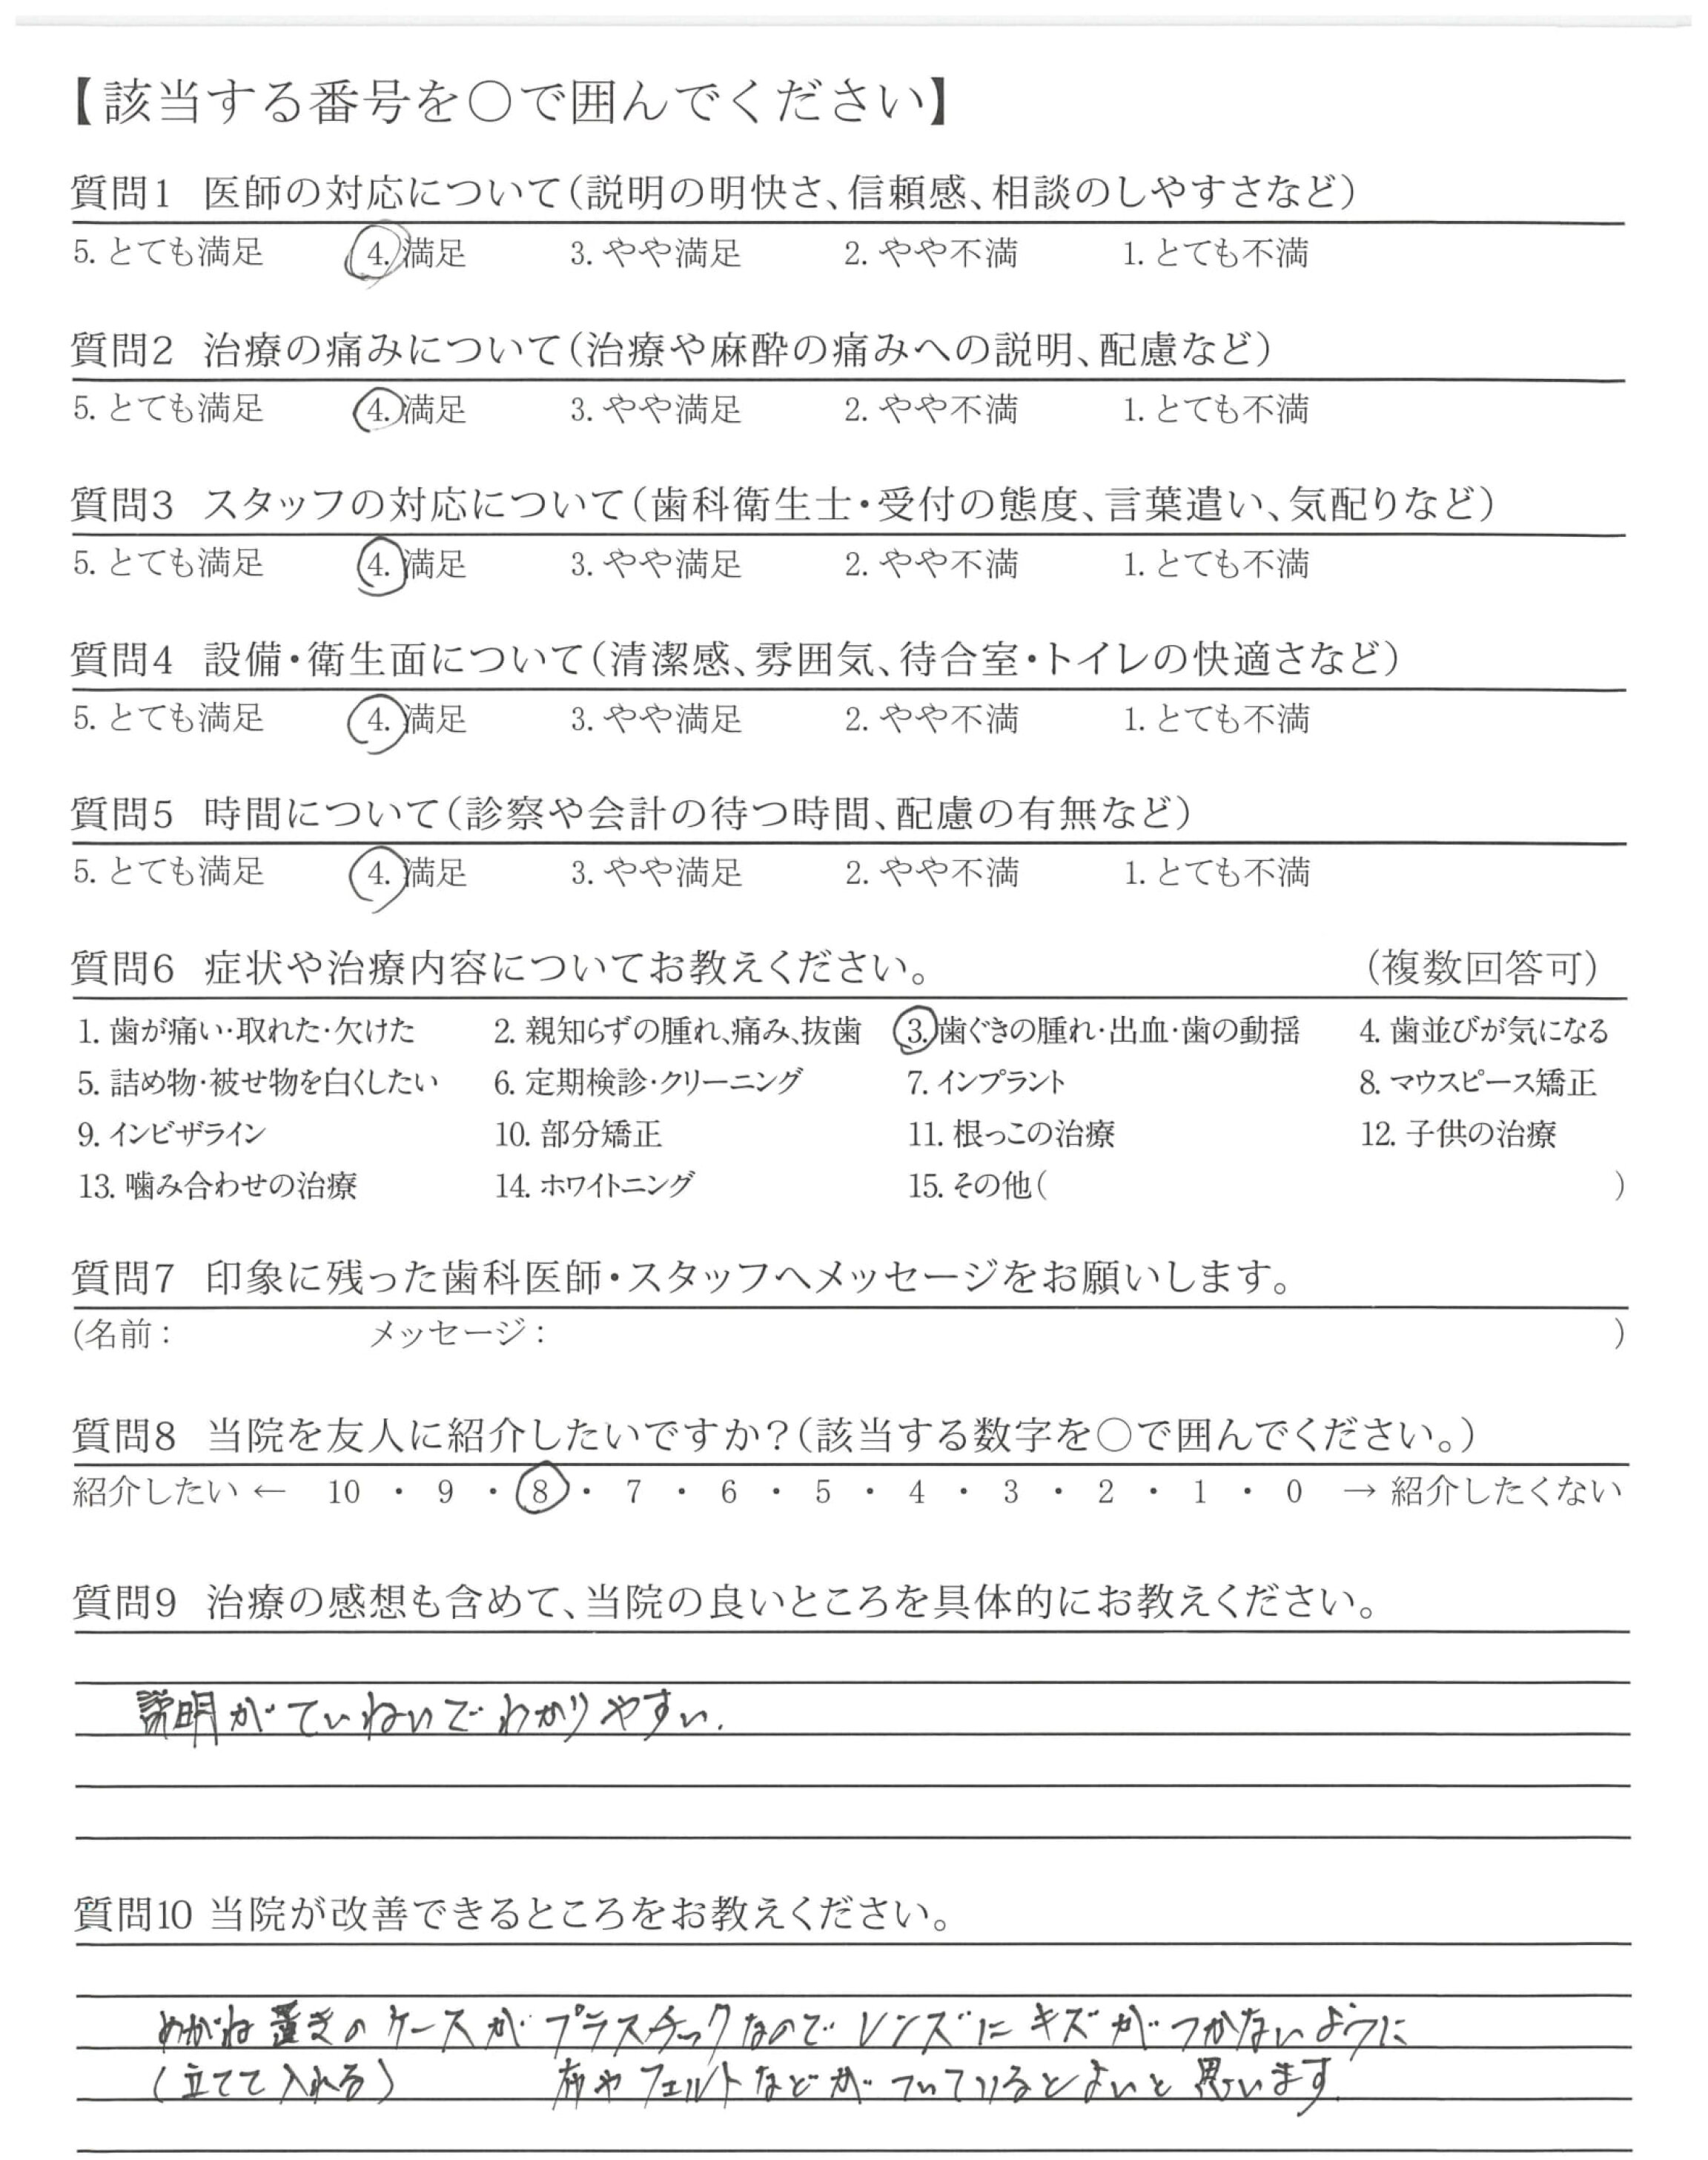 【該当する番号を○で囲んでください】
質問1 医師の対応について（説明の明快さ、信頼感、相談のしやすさなど）
5. とても満足 4. 満足 3. やや満足 2. やや不満 1. とても不満
質問2 治療の痛みについて（治療や麻酔の痛みへの説明、配慮など）
5. とても満足 4. 満足 3. やや満足 2. やや不満 1. とても不満
質問3 スタッフの対応について（歯科衛生士・受付の態度、言葉遣い、気配りなど）
5. とても満足 4. 満足 3. やや満足 2. やや不満 1. とても不満
質問4 設備・衛生面について（清潔感、雰囲気、待合室・トイレの快適さなど）
5. とても満足 4. 満足 3. やや満足 2. やや不満 1. とても不満
質問5 時間について（診察や会計の待つ時間、配慮の有無など）
5. とても満足 4. 満足 3. やや満足 2. やや不満 1. とても不満
質問6 症状や治療内容についてお教えください。 （複数回答可）
1. 歯が痛い・取れた・欠けた 2. 親知らずの腫れ、痛み、抜歯 3. 歯ぐきの腫れ・出血・歯の動揺 4. 歯並びが気になる
5. 詰め物・被せ物を白くしたい 6. 定期検診・クリーニング 7. インプラント 8. マウスピース矯正
9. インビザライン 10. 部分矯正 11. 根っこの治療 12. 子供の治療
13. 噛み合わせの治療 14. ホワイトニング 15. その他（ ）
質問7 印象に残った歯科医師・スタッフへメッセージをお願いします。
（名前： メッセージ： ）
質問8 当院を友人に紹介したいですか？（該当する数字を○で囲んでください。）
紹介したい ← 10 ・ 9 ・ 8 ・ 7 ・ 6 ・ 5 ・ 4 ・ 3 ・ 2 ・ 1 ・ 0 → 紹介したくない
質問9 治療の感想も含めて、当院の良いところを具体的にお教えください。
説明がていねいでわかりやすい.
質問10 当院が改善できるところをお教えください。
めがね置きのケースがプラスチックなのでレンズにキズがつかないように
（立てて入れる） 布やフェルトなどがついているとよいと思います.